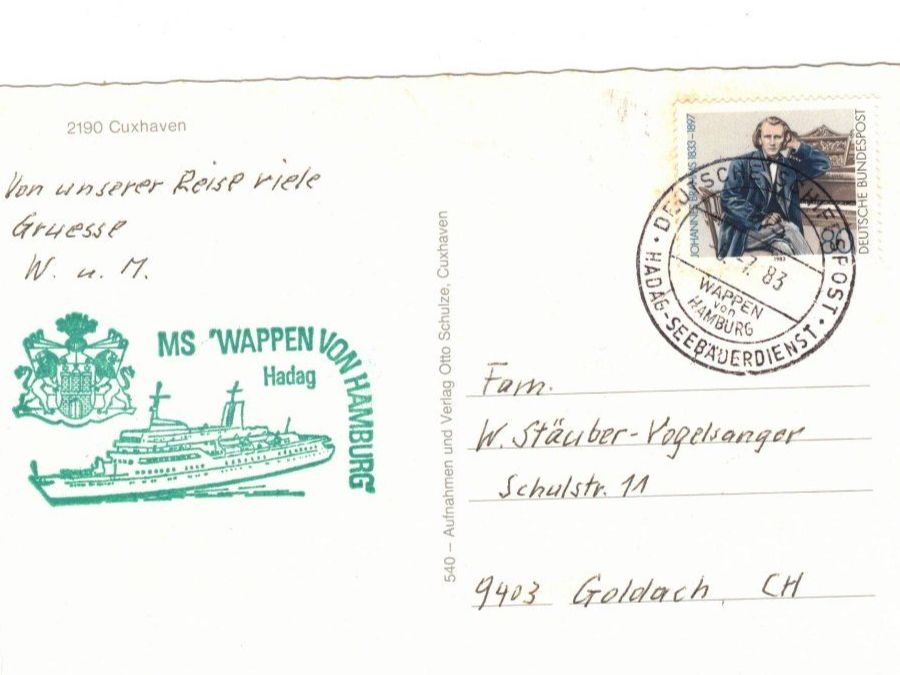 2190 Cuxhaven
Von unserer Reise viele
Gruesse
W. u. M.
MS "WAPPEN VON HAMBURG
Hadag
540 – Aufnahmen und Verlag Otto Schulze, Cuxhaven
JOHANNES BRAHMS 1833-1897
DEUTSCHE BUNDESPOST
80
1983
DEUTSCHE SCHIFFSPOST
7. 83
WAPPEN
von
HAMBURG
HADAG-SEEBÄDERDIENST
Fam.
W. Stäuber-Vogelsanger
Schulstr. 11
9403 Goldach, CH